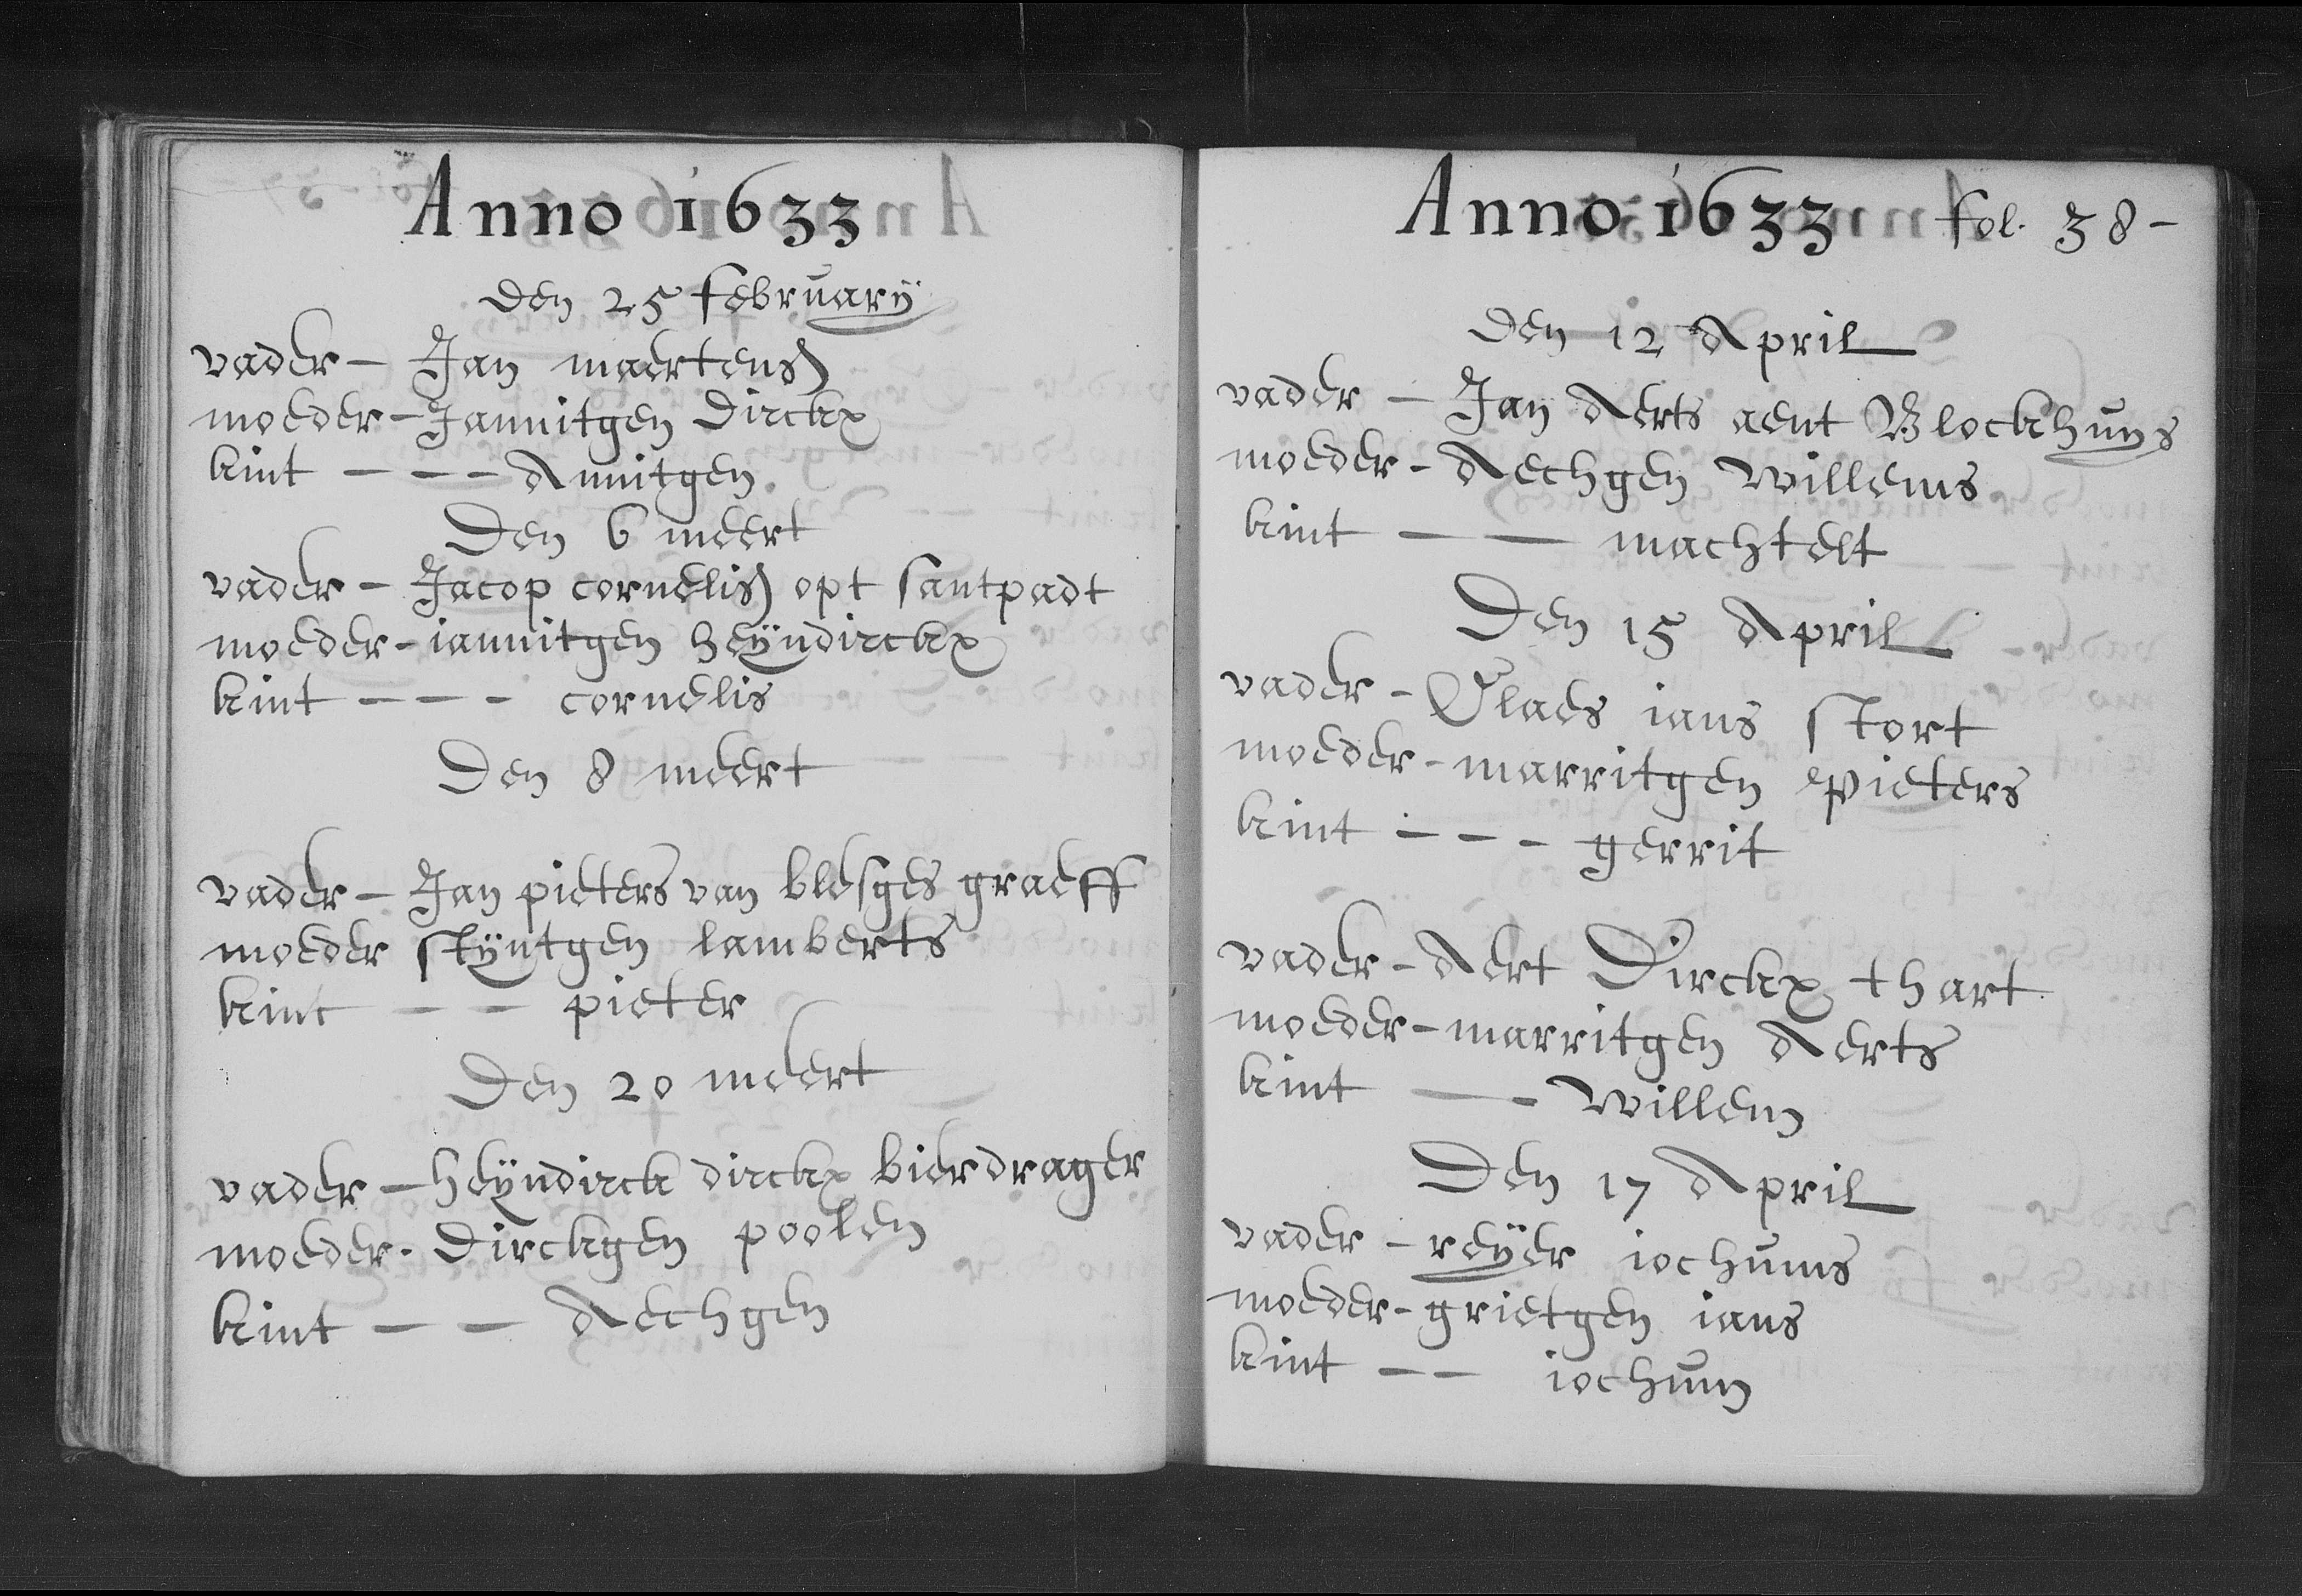 Anno 1633
Den 25 february
vader - Jan maertens
moeder - Jannitgen Dirckx
kint - - - Annitgen
Den 6 meert
vader - Jacop cornelis opt santpadt
moeder - iannitgen heÿndirckx
kint - - - cornelis
Den 8 meert
vader - Jan pieters van blesges graeff
moeder stÿntgen lamberts
kint - - pieter
Den 20 meert
vader - heÿndirck dirckx bierdrager
moeder - Dirckgen poolen
kint - - Aechgen
Anno 1633 fol. 38 -
Den 12 April
vader - Jan Aerts aent Blockhuys
moeder - Aechgen Willems
kint - - machtelt
Den 15 April
vader - Claes ians stort
moeder - marritgen Pieters
kint - - - gerrit
vader - Aert Dirckx thart
moeder - marritgen Aerts
kint - - Willem
Den 17 April
vader - reÿer iochums
moeder - grietgen ians
kint - - iochum